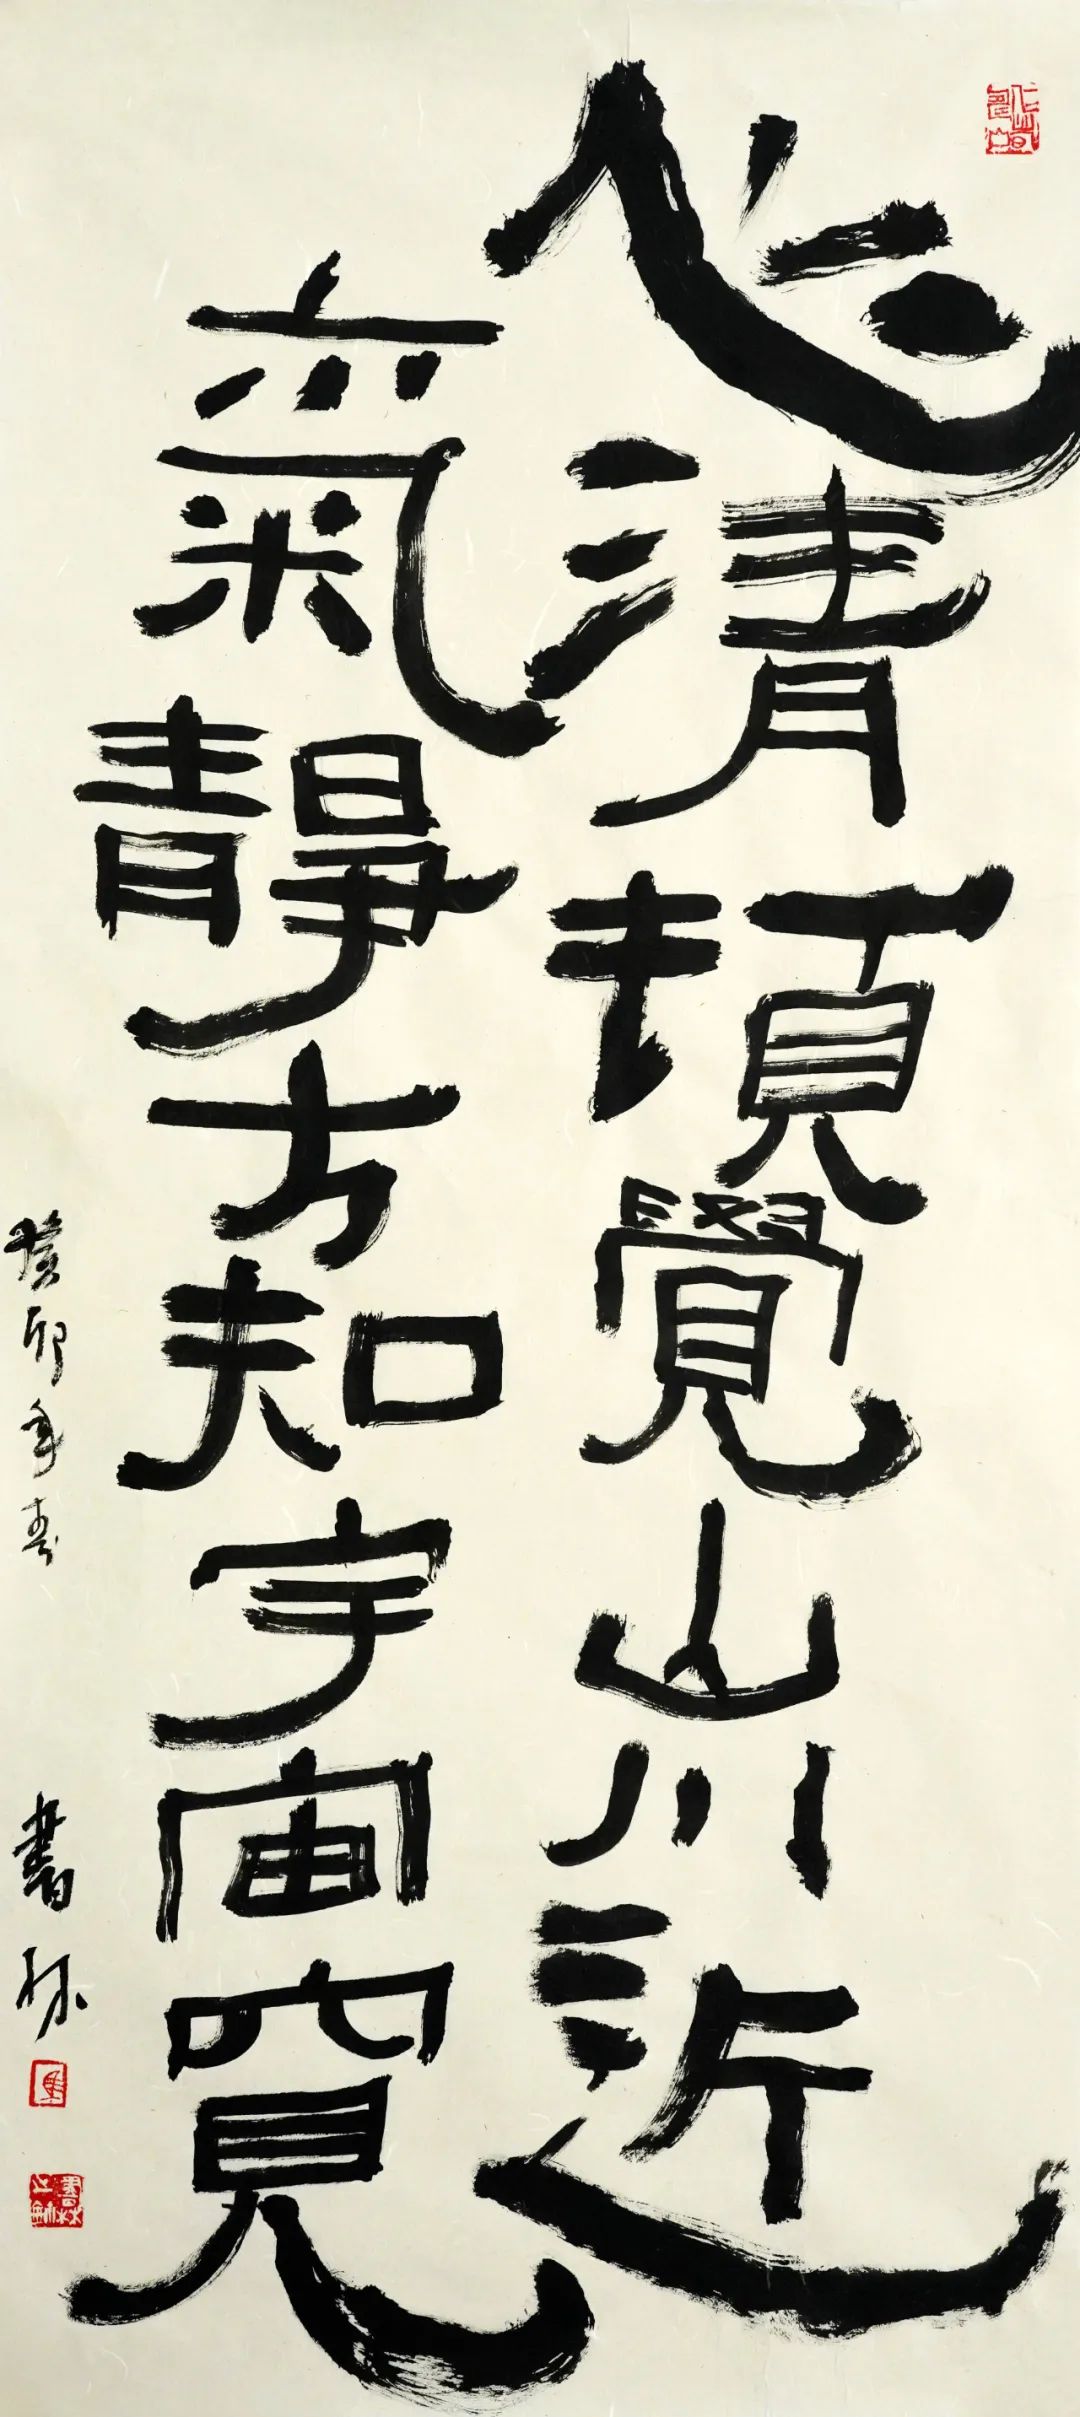 心清頓覺山川近
氣靜方知宇宙寬
癸卯年春
書林